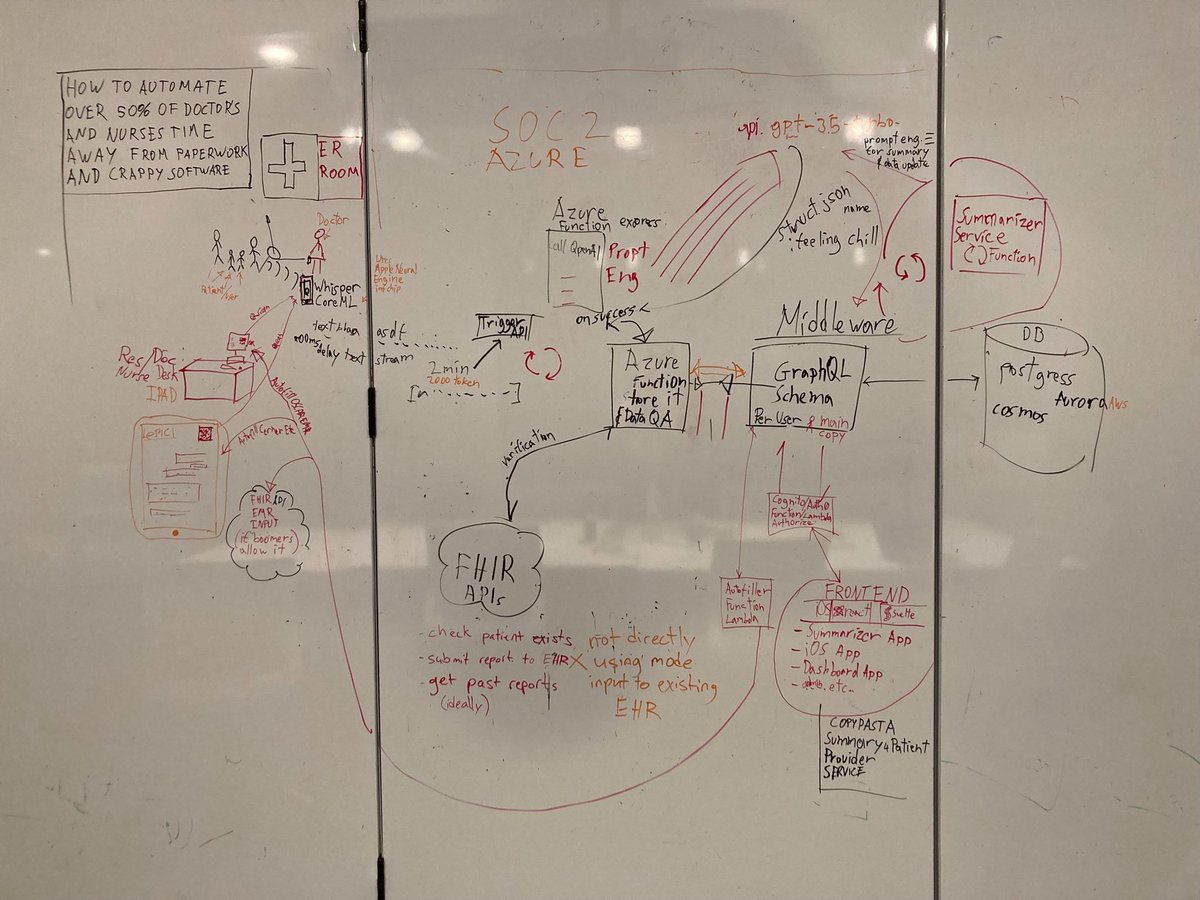 HOW TO AUTOMATE
OVER 50% OF DOCTORS
AND NURSES TIME
AWAY FROM PAPERWORK
AND CRAPPY SOFTWARE
ER
ROOM
Doctor
Patient/user
Whisper
CoreML
Apple Neural
Engine
text
delay text
stream
asdf
Res/Doc
Nurse Desk
IPAD
[epic]
FHIR API
EMR
INPUT
(if boomers
allow it
SOC 2
AZURE
Azure
Function express
call OpenAI
Propt
Eng
on success
Trigger
API
2min
2000 token
[n ]
api. gpt-3.5-turbo-
prompt eng.
for summary
& data update
struct.json
name
: feeling chill
Summarizer
Service
Function
Middleware
Azure
Function
tore it
& Data QA
GraphQL
Schema
Per User & main
copy
DB
postgress
Aurora AWS
cosmos
varification
FHIR
APIs
- check patient exists
- submit report to EHR X
- get past reports
(ideally)
not directly
using mode
input to existing
EHR
Cognito/Auth0
Function/Lambda
Authorize
Autofiller
Function
Lambda
FRONTEND
iOS react Svelte
- Summarizer App
- iOS App
- Dashboard App
- etc..
COPYPASTA
Summary 4 Patient
Provider
SERVICE